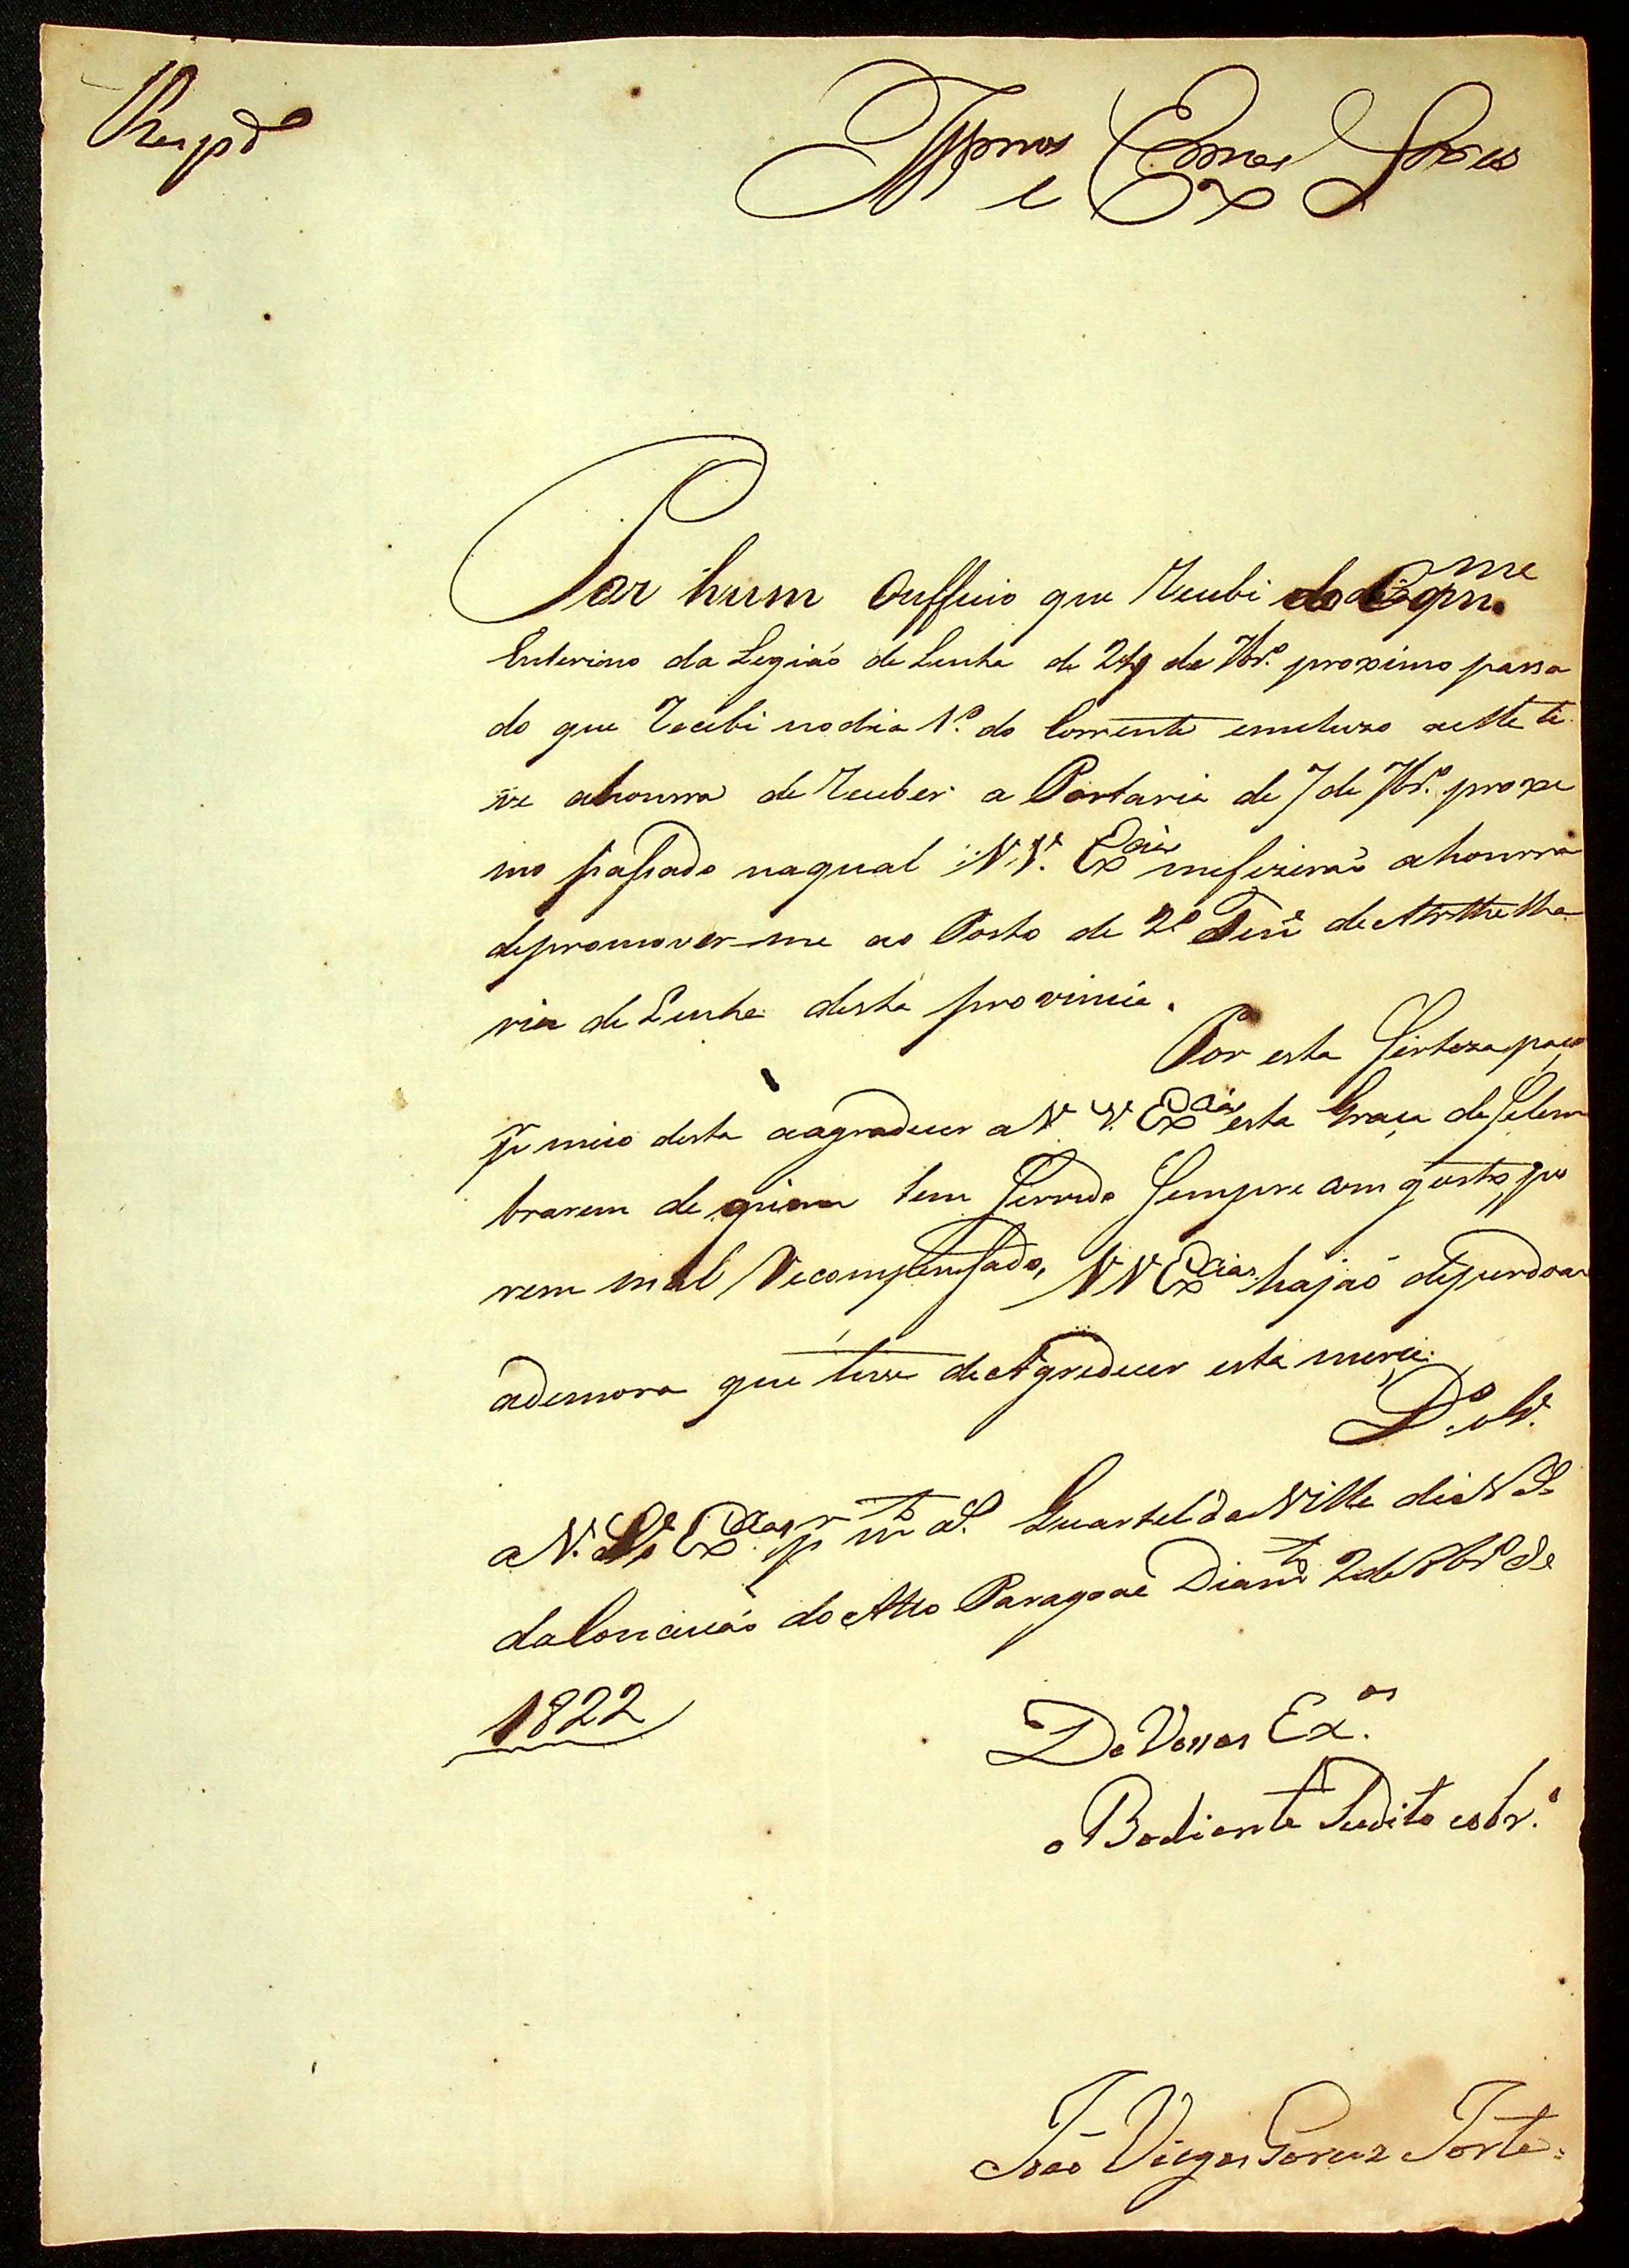 Respd.º
Illmos e Exmos Snres
Por hum Oufficio que Recebi do
Enterino da Legiaõ de Linha de 24 de 7br.º proximo passa
do que Recebi no dia 1.º do Corrente emcluzo nelle ti
ve ahonrra de Receber a Portaria de 7 de 7br.º proxe
mo passado naqual V.V. Ex.cias mefizeraõ ahonrra
depromover-me ao Posto de 2.º Ten.e de Artelha
ria de Linha desta provincia.
Por esta Sirteza, paço
pr meio desta aagradecer a V. V. Ex.cias esta Graça de Selem
brarem de quem tem Servido Sempre com gosto, po
rem mal Recompensado, VV Ex.cias hajaõ deperdoar
ademora que tive de Agradecer esta merce.
D.s g.e
a V. V. Ex.cias pr m.tos a.s Quartel da Villa de N. S.
da Conceicaõ do Alto Paragoai Diam.no 2 de 8br.º de
1822
De Vossas Ex.as
oBediente Sudito eobr.º
Joaõ Viegas Forte.